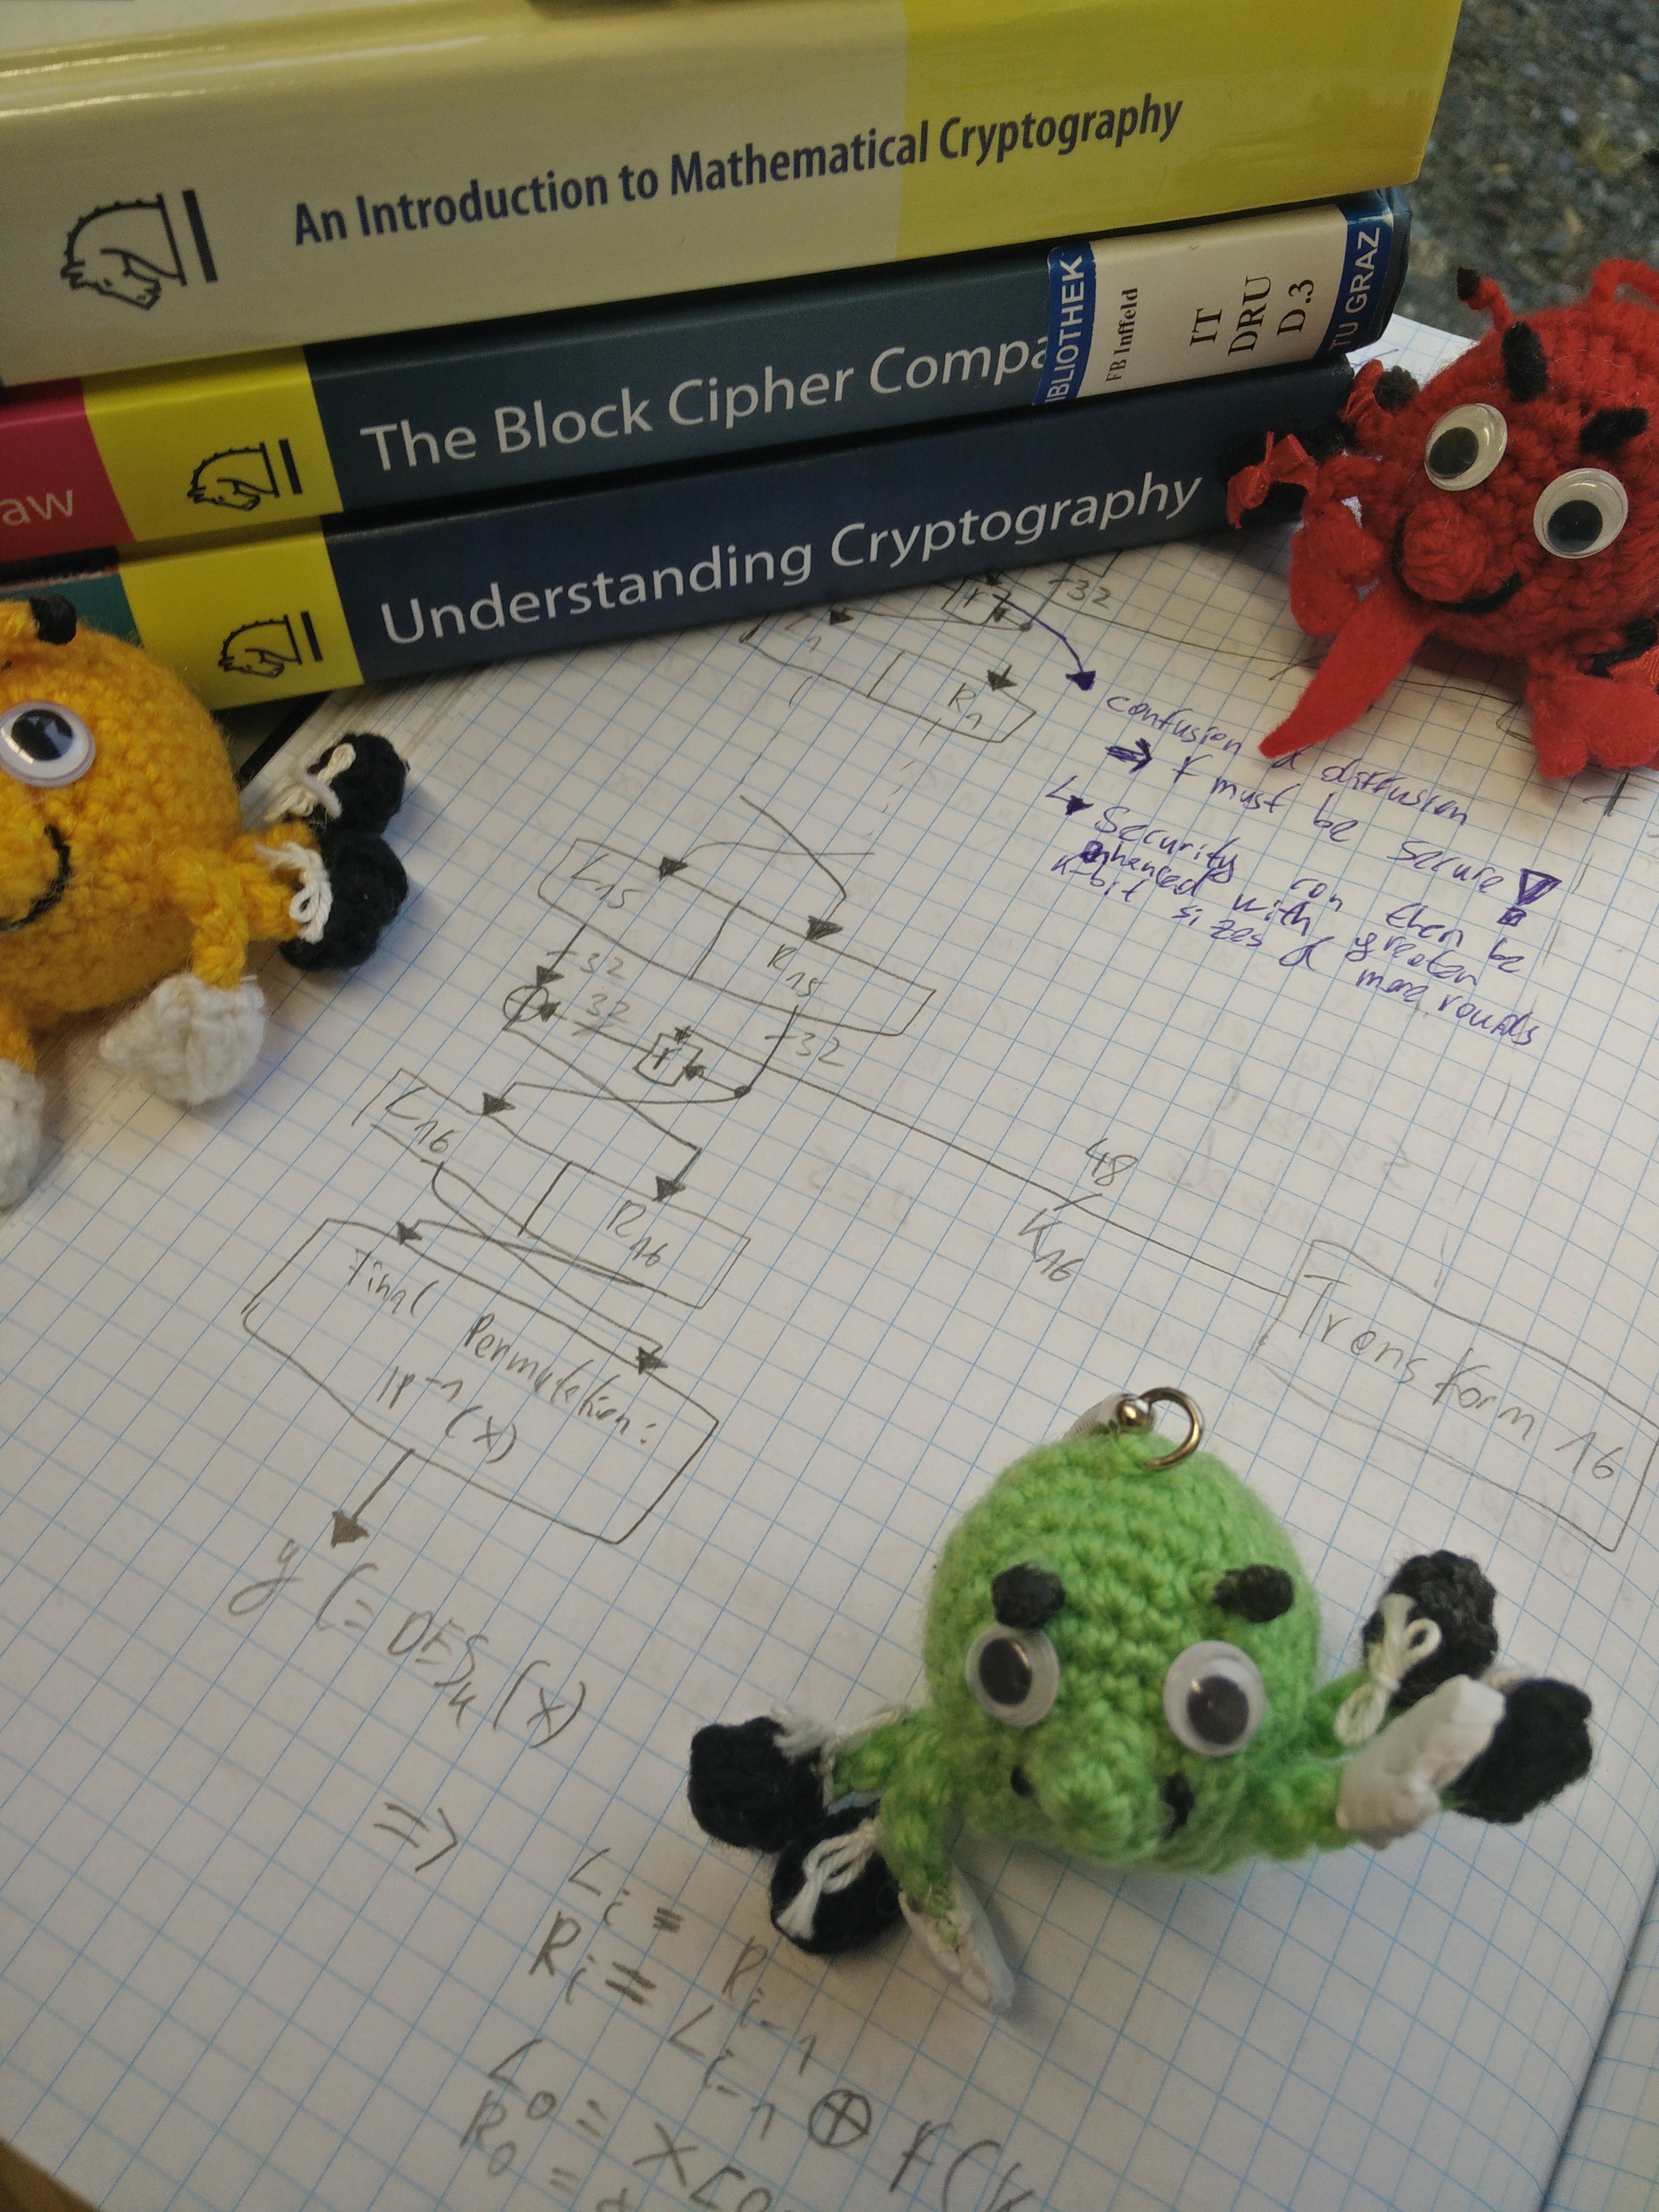 An Introduction to Mathematical Cryptography
aw
The Block Cipher Compa
IBLIOTHEK
FB Inffeld
IT
DRU
D.3
TU GRAZ
Understanding Cryptography
f
32
L1
R1
confusion & diffusion
⇒ f must be secure!
↳ Security can then be
enhanced with greater
k-bit sizes & more rounds
L15
R15
32
32
f
32
L16
R16
48
K16
Transform 16
Final Permutation:
IP-1(x)
y (= DESk (x)
=> Li = Ri-1
Ri = Li-1 ⊕ f(k
L0 = x[0
R0 =